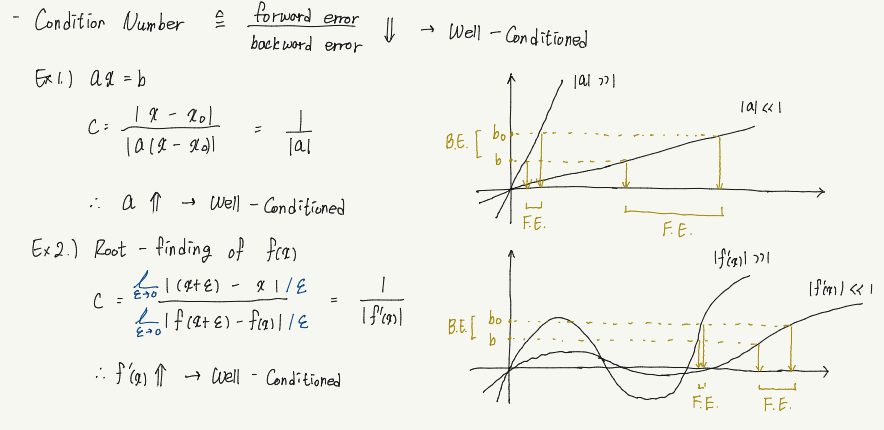 - Condition Number ≜ forward error / backword error ⇓ → Well-Conditioned
Ex1.) ax = b
C = |x - x₀| / |a(x - x₀)| = 1 / |a|
∴ a ⇑ → Well-Conditioned
|a| >> 1
|a| << 1
B.E. [ b₀
b
F.E.
F.E.
Ex2.) Root-finding of f(x)
C = lim ε→0 |(x+ε) - x| /ε / lim ε→0 |f(x+ε) - f(x)| /ε = 1 / |f'(x)|
∴ f'(x) ⇑ → Well-Conditioned
|f'(x)| >> 1
|f'(x)| << 1
B.E. [ b₀
b
F.E.
F.E.